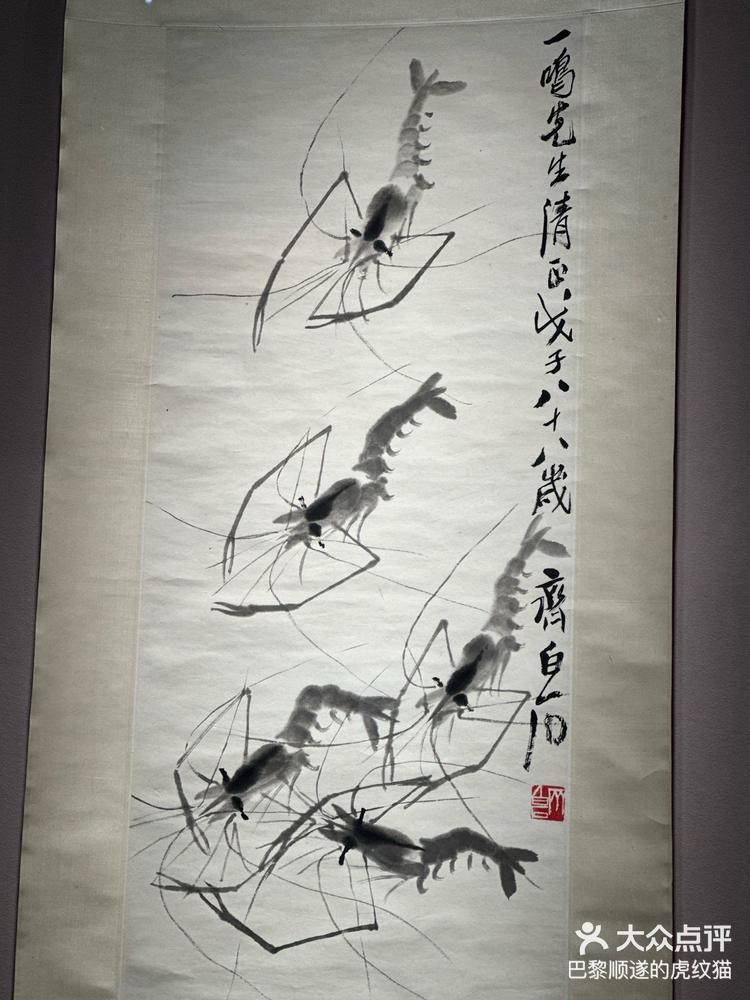 一鸣先生清正戊子八十八歲
齊白石
大众点评
巴黎顺遂的虎纹猫